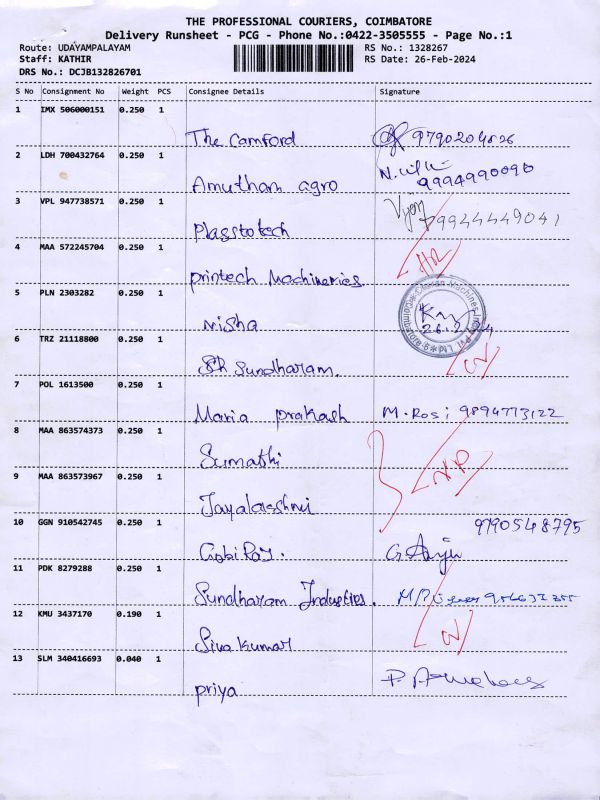 THE PROFESSIONAL COURIERS, COIMBATORE
Delivery Runsheet - PCG - Phone No.:0422-3505555 - Page No.:1
Route: UDAYAMPALAYAM RS No.: 1328267
Staff: KATHIR RS Date: 26-Feb-2024
DRS No.: DCJB132826701
S No Consignment No Weight PCS Consignee Details Signature
1 IMX 506000151 0.250 1
The Camford 9790204826
2 LDH 700432764 0.250 1
Amutham agro 9994990090
3 VPL 947738571 0.250 1
Plasstotech 9944449041
4 MAA 572245704 0.250 1
printech Machineries
5 PLN 2303282 0.250 1
nisha
6 TRZ 21118800 0.250 1
SR Sundharam.
7 POL 1613500 0.250 1
Maria prakash M. Rosi 9894773122
8 MAA 863574373 0.250 1
Sumathi
9 MAA 863573967 0.250 1
Jayalakshmi
10 GGN 910542745 0.250 1 9790548795
Gobi Raj. G Anju
11 PDK 8279288 0.250 1
Sundharam Industries.
12 KMU 3437170 0.190 1
Siva kumar
13 SLM 340416693 0.040 1
priya